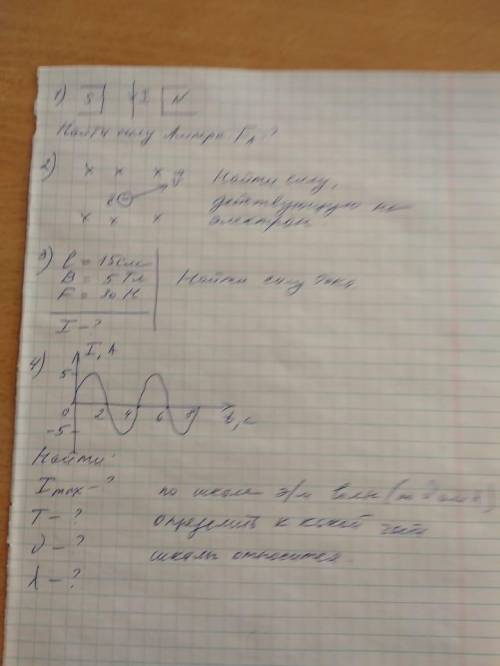 1) S I N
Найти силу Ампера Fₐ?
2) x x x v
Найти силу,
e −
действующую на
x x x
электрон
3) l = 15 см
B = 5 Тл
Найти силу тока
F = 30 Н
I - ?
4) I, A
5
0 2 4 6 8 t, c
-5
Найти:
Imax - ?
по шкале э/м волн
T - ?
определить к какой части
ν - ?
шкалы относится
λ - ?